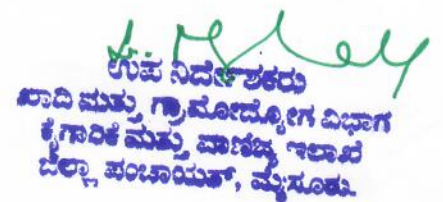 ಉಪ ನಿರ್ದೇಶಕರು
ಖಾದಿ ಮತ್ತು ಗ್ರಾಮೋದ್ಯೋಗ ವಿಭಾಗ
ಕೈಗಾರಿಕೆ ಮತ್ತು ವಾಣಿಜ್ಯ ಇಲಾಖೆ
ಜಿಲ್ಲಾ ಪಂಚಾಯತ್, ಮೈಸೂರು.